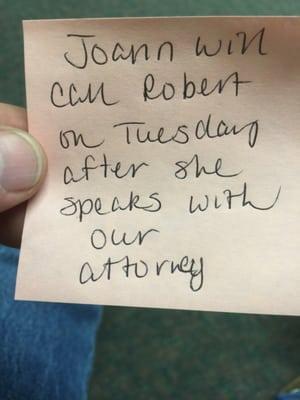 Joann will
call Robert
on Tuesday
after she
speaks with
our
attorney